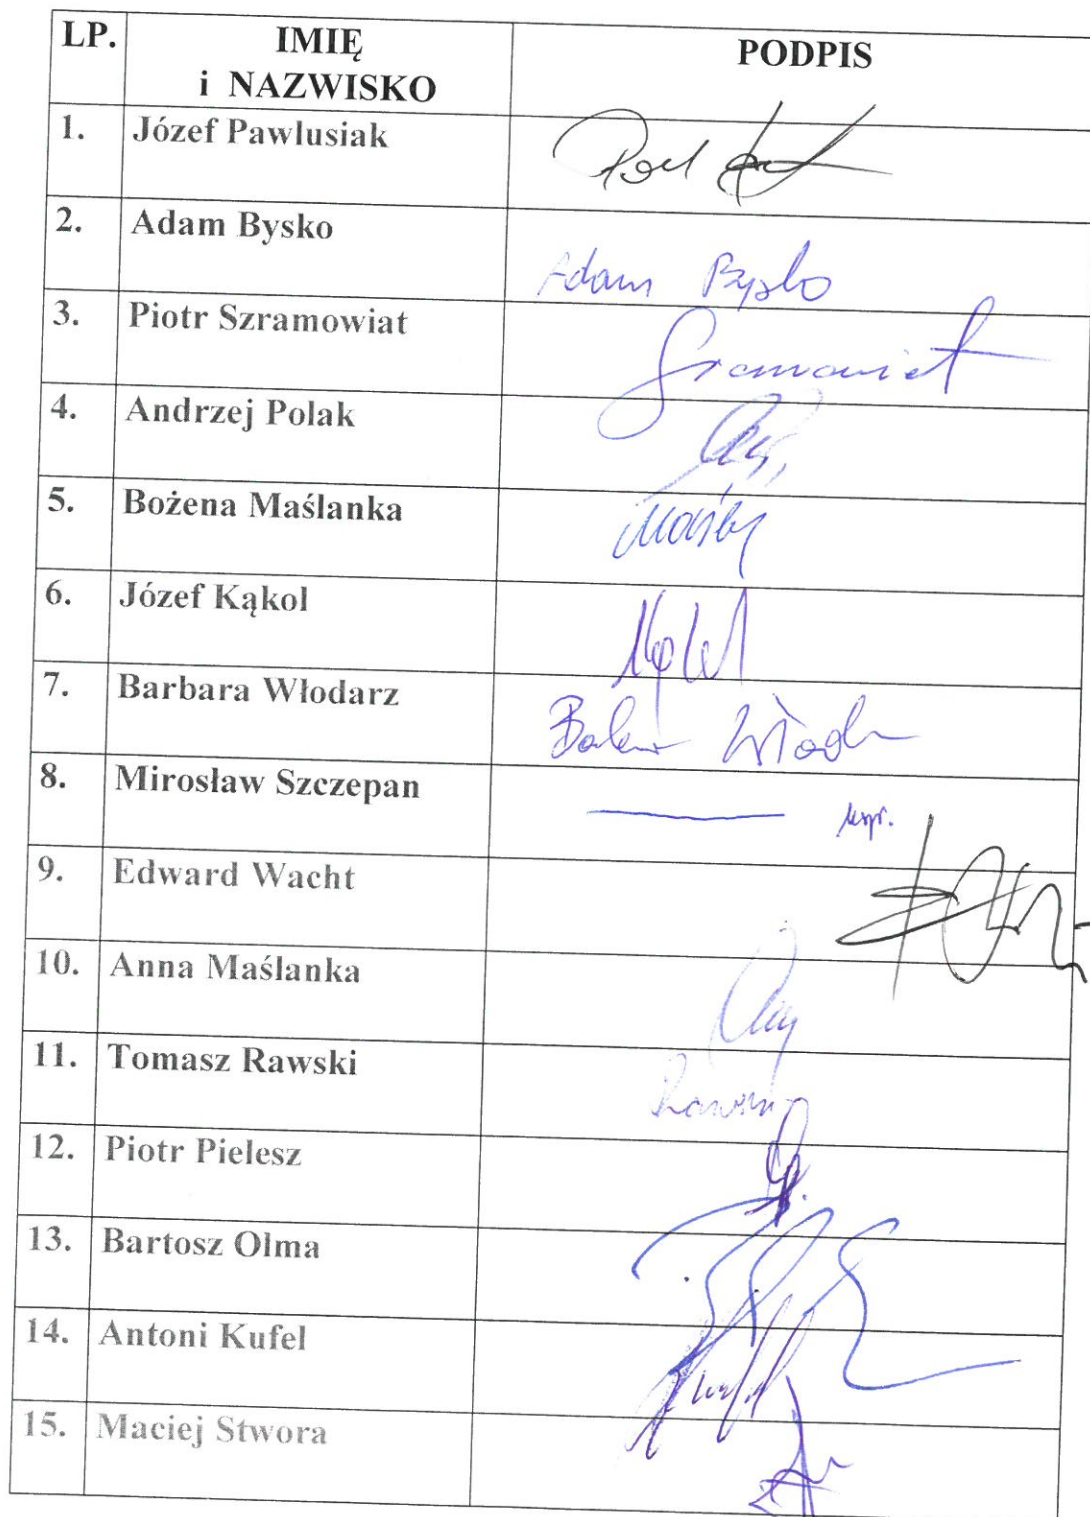 LP. IMIĘ i NAZWISKO PODPIS
1. Józef Pawlusiak
2. Adam Bysko Adam Bysko
3. Piotr Szramowiat Szramowiat
4. Andrzej Polak
5. Bożena Maślanka
6. Józef Kąkol
7. Barbara Włodarz
8. Mirosław Szczepan
9. Edward Wacht
10. Anna Maślanka
11. Tomasz Rawski
12. Piotr Pielesz
13. Bartosz Olma
14. Antoni Kufel
15. Maciej Stwora